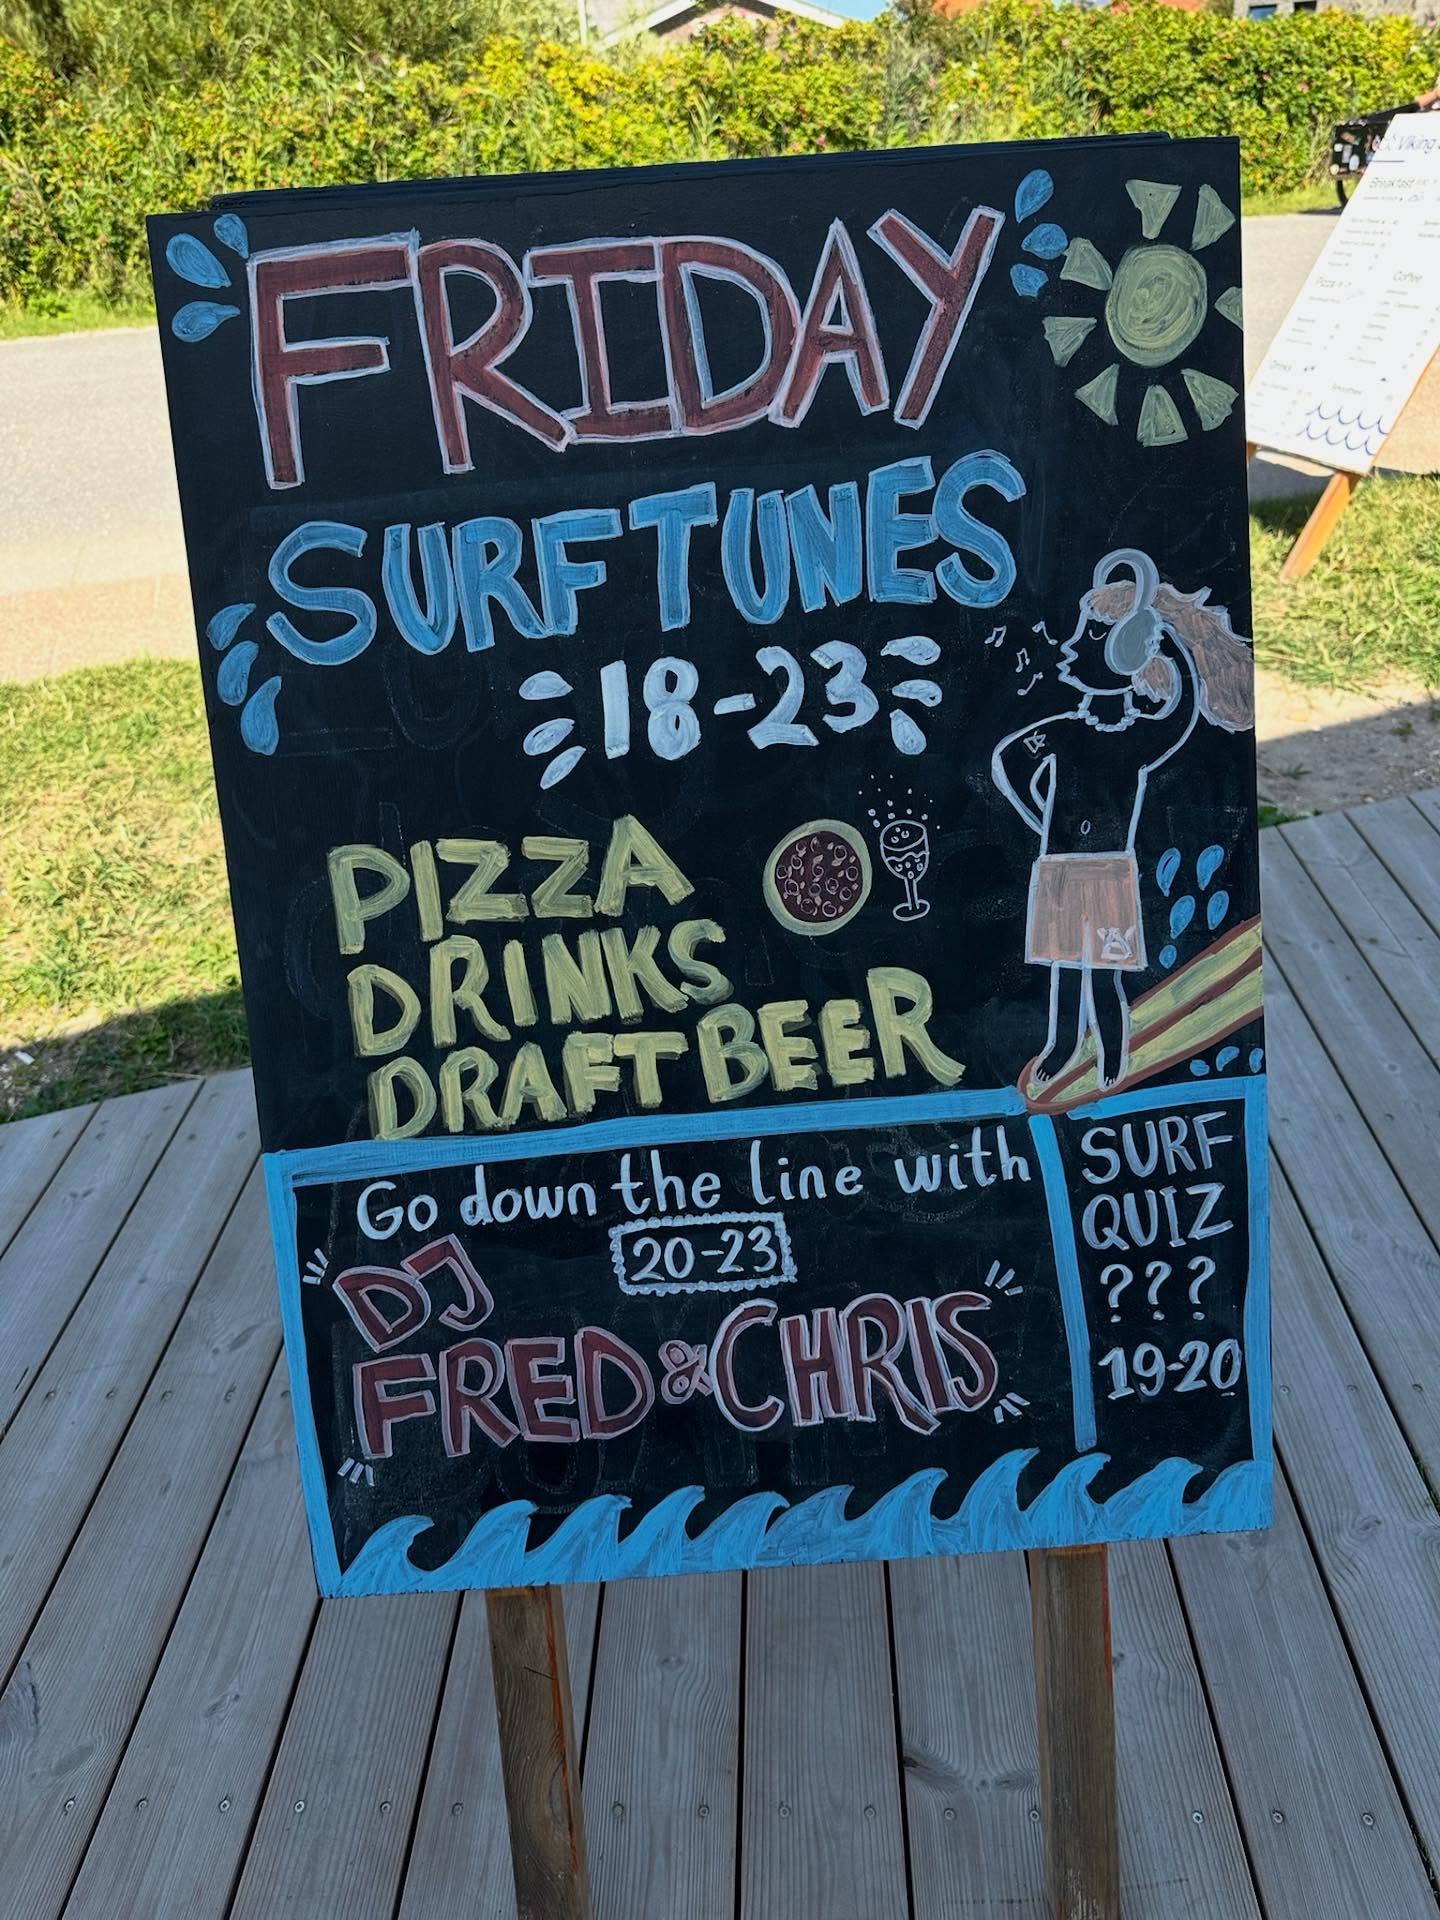 FRIDAY
SURFTUNES
18-23
PIZZA
DRINKS
DRAFT BEER
Go down the line with
20-23
DJ
FRED & CHRIS
SURF
QUIZ
???
19-20
Viking
Breakfast
Coffee